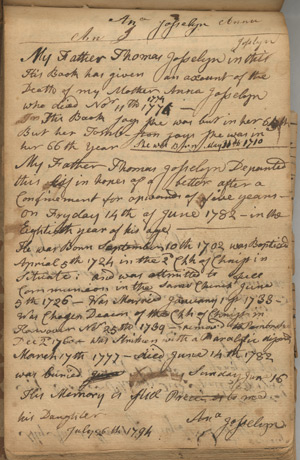 Ana Josselyn
My Father Thomas Josselyn in this
His Book has given an account of the
Death of my Mother Anna Josselyn
who died Nor 11th 1774
His Book Says she was but in her
But her Tomb Stone Says she was in
her 66th Year She was Born May 1710
My Father Thomas Josselyn Departed
this life in hopes of a better after a
Confinement for upwards of five years
on Fryday 14th of June 1782 - in the
Eightieth year of his age
He was Born September 10th 1702 was Baptised
April 5th 1724 in the 2 Chh of Christ in
Scituate: and was admitted to
Communion in the Same Church June
5th 1726 - Was Married January 1st 1738 -
Was Chosen Deacon of the Chh of Christ in
Hanover Nor 25th 1739 - removed to Pembroke
Decr 1760 was Struken with a Paralitic
March 17th 1777 - died June 14th 1782
was buried Sunday Jun 16
His Memory is still to me
his Daughter Ana Josselyn
July 5th 1794